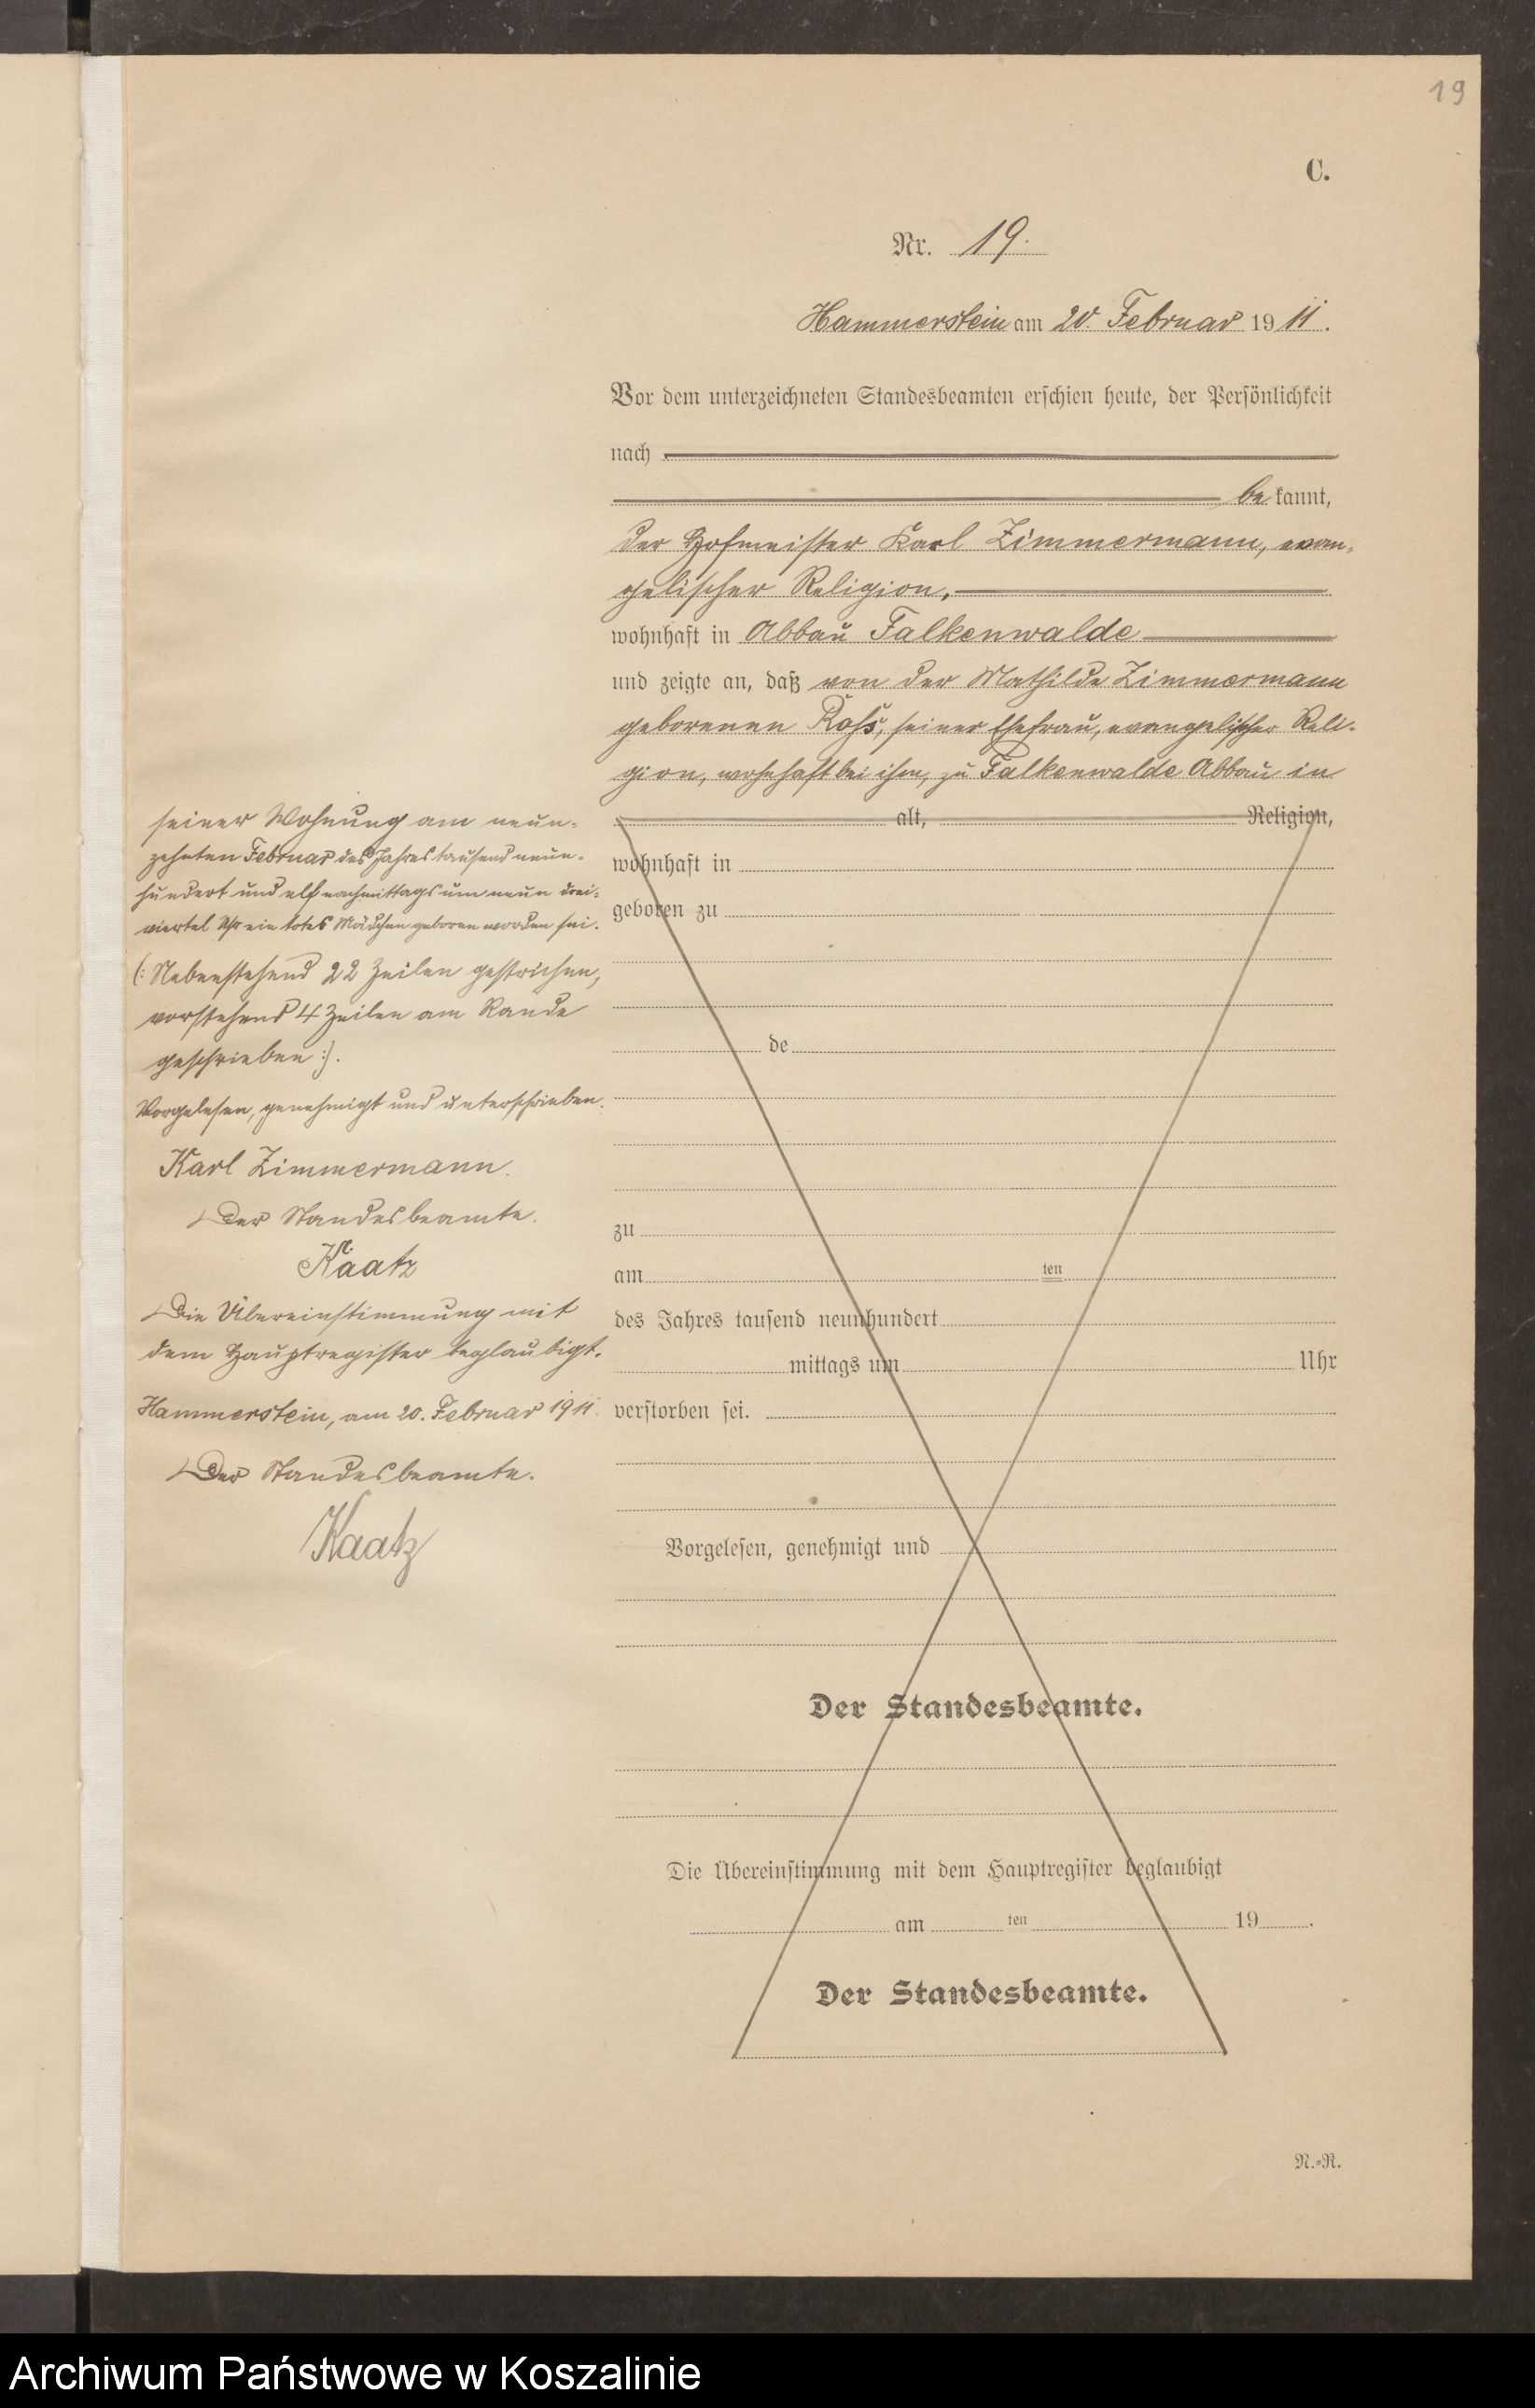 19
C.
Nr. 19.
Hammerstein am 20. Februar 1911.
Vor dem unterzeichneten Standesbeamten erschien heute, der Persönlichkeit
nach
be kannt,
der Hofmeister Karl Zimmermann, evan-
gelischer Religion,
wohnhaft in Abbau Falkenwalde
und zeigte an, daß von der Mathilde Zimmermann
geborenen Rohs, seiner Ehefrau, evangelischer Reli-
gion, wohnhaft bei ihm, zu Falkenwalde Abbau in
alt, Religion,
wohnhaft in
geboren zu
de
zu
am ten
des Jahres tausend neunhundert
mittags um Uhr
verstorben sei.
Vorgelesen, genehmigt und
Der Standesbeamte.
Die Übereinstimmung mit dem Hauptregister beglaubigt
am ten 19 .
Der Standesbeamte.
N.-R.
seiner Wohnung am neun-
zehnten Februar des Jahres tausend neun-
hundert und elf nachmittags um neun drei-
viertel Uhr ein totes Mädchen geboren worden sei.
(: Nebenstehend 22 Zeilen gestrichen,
vorstehend 4 Zeilen am Rande
geschrieben :).
Vorgelesen, genehmigt und unterschrieben.
Karl Zimmermann.
Der Standesbeamte.
Kaatz
Die Übereinstimmung mit
dem Hauptregister beglaubigt.
Hammerstein, am 20. Februar 1911.
Der Standesbeamte.
Kaatz
Archiwum Państwowe w Koszalinie